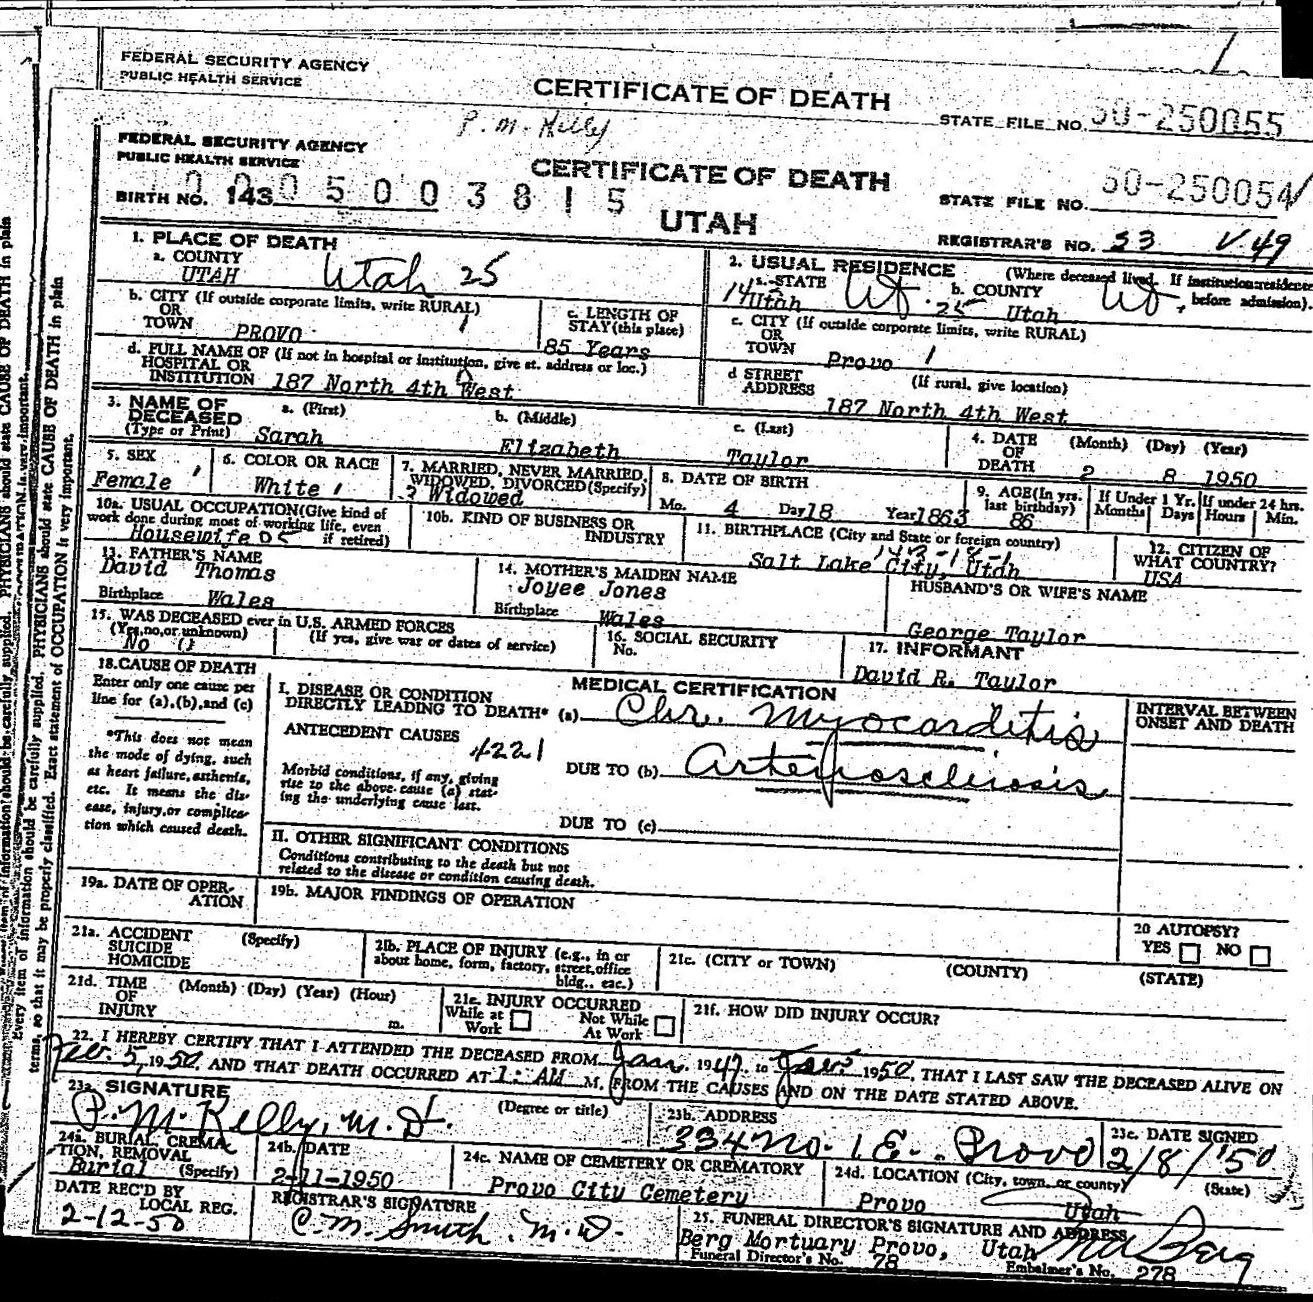 FEDERAL SECURITY AGENCY
PUBLIC HEALTH SERVICE
CERTIFICATE OF DEATH
STATE FILE NO. 50-250055
P. M. Kelly
FEDERAL SECURITY AGENCY
PUBLIC HEALTH SERVICE
CERTIFICATE OF DEATH
STATE FILE NO. 50-250054
BIRTH NO. 143
0005003815
UTAH
REGISTRAR'S NO. 53 V.49
1. PLACE OF DEATH
a. COUNTY
UTAH Utah 25
2. USUAL RESIDENCE (Where deceased lived. If institution: residence before admission).
a. STATE 14 Utah Ut. 25
b. COUNTY Utah Ut.
b. CITY (If outside corporate limits, write RURAL)
OR
TOWN PROVO 1
c. LENGTH OF
STAY (this place)
85 Years
c. CITY (If outside corporate limits, write RURAL)
OR
TOWN Provo 1
d. FULL NAME OF (If not in hospital or institution, give st. address or loc.)
HOSPITAL OR
INSTITUTION 187 North 4th West
d STREET
ADDRESS (If rural, give location)
187 North 4th West
3. NAME OF
DECEASED
(Type or Print)
a. (First) Sarah
b. (Middle) Elizabeth
c. (Last) Taylor
4. DATE
OF
DEATH
(Month) (Day) (Year)
2 8 1950
5. SEX
Female
6. COLOR OR RACE
White
7. MARRIED, NEVER MARRIED,
WIDOWED, DIVORCED (Specify)
3 Widowed
8. DATE OF BIRTH
Mo. 4 Day 18 Year 1863
9. AGE (In yrs.
last birthday)
86
If Under 1 Yr.
Months Days
If under 24 hrs.
Hours Min.
10a. USUAL OCCUPATION (Give kind of
work done during most of working life, even
if retired)
Housewife 05
10b. KIND OF BUSINESS OR
INDUSTRY
11. BIRTHPLACE (City and State or foreign country)
143-18-1
Salt Lake City, Utah
12. CITIZEN OF
WHAT COUNTRY?
USA
13. FATHER'S NAME
David Thomas
Birthplace Wales
14. MOTHER'S MAIDEN NAME
Joyee Jones
Birthplace Wales
HUSBAND'S OR WIFE'S NAME
George Taylor
15. WAS DECEASED ever in U.S. ARMED FORCES
(Yes, no, or unknown) (If yes, give war or dates of service)
No 0
16. SOCIAL SECURITY
No.
17. INFORMANT
David R. Taylor
18. CAUSE OF DEATH
Enter only one cause per
line for (a), (b), and (c)
*This does not mean
the mode of dying, such
as heart failure, asthenia,
etc. It means the dis-
ease, injury, or complica-
tion which caused death.
MEDICAL CERTIFICATION
INTERVAL BETWEEN
ONSET AND DEATH
I. DISEASE OR CONDITION
DIRECTLY LEADING TO DEATH* (a) Chr. Myocarditis
ANTECEDENT CAUSES
4221
Morbid conditions, if any, giving
rise to the above cause (a) stat-
ing the underlying cause last.
DUE TO (b) Arteriosclerosis
DUE TO (c)
II. OTHER SIGNIFICANT CONDITIONS
Conditions contributing to the death but not
related to the disease or condition causing death.
19a. DATE OF OPER-
ATION
19b. MAJOR FINDINGS OF OPERATION
20 AUTOPSY?
YES NO
21a. ACCIDENT
SUICIDE
HOMICIDE
(Specify)
21b. PLACE OF INJURY (e.g., in or
about home, form, factory, street, office
bldg., eac.)
21c. (CITY or TOWN) (COUNTY) (STATE)
21d. TIME
OF
INJURY
(Month) (Day) (Year) (Hour)
m.
21e. INJURY OCCURRED
While at
Work
Not While
At Work
21f. HOW DID INJURY OCCUR?
22. I HEREBY CERTIFY THAT I ATTENDED THE DECEASED FROM Jan. 1947, to 1950, THAT I LAST SAW THE DECEASED ALIVE ON
Feb. 5, 1950, AND THAT DEATH OCCURRED AT 1: AM M, FROM THE CAUSES AND ON THE DATE STATED ABOVE.
23a. SIGNATURE (Degree or title)
P. M. Kelly, M. D.
23b. ADDRESS
334 No. 1 E. Provo
23c. DATE SIGNED
2/8/'50
24a. BURIAL, CREMA-
TION, REMOVAL
Burial (Specify)
24b. DATE
2-11-1950
24c. NAME OF CEMETERY OR CREMATORY
Provo City Cemetery
24d. LOCATION (City, town, or county) (State)
Provo Utah
DATE REC'D BY
LOCAL REG.
2-12-50
REGISTRAR'S SIGNATURE
C. M. Smith, M.D.
25. FUNERAL DIRECTOR'S SIGNATURE AND ADDRESS
Berg Mortuary Provo, Utah Berg
Funeral Director's No. 78
Embalmer's No. 278
Every item of information should be carefully supplied. PHYSICIANS should state CAUSE OF DEATH in plain
terms, so that it may be properly classified. Exact statement of OCCUPATION is very important.